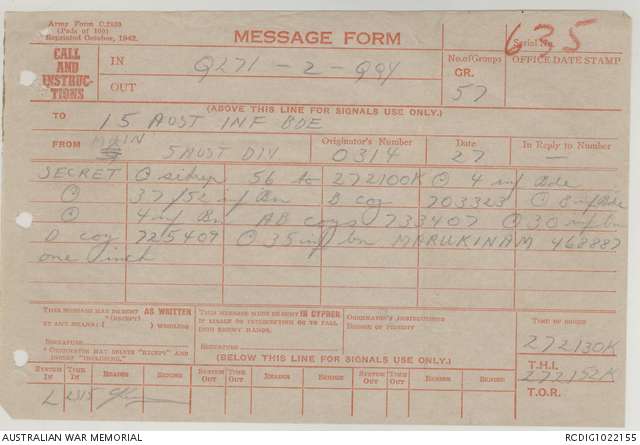 Army Form C.2128
(Pads of 100)
Reprinted October, 1942.
MESSAGE FORM
Serial No. 635
CALL
AND
INSTRUC-
TIONS
IN
Q271 - 2 - QQY
OUT
No. of Groups
GR.
57
OFFICE DATE STAMP
(ABOVE THIS LINE FOR SIGNALS USE ONLY.)
TO 15 AUST INF BDE
FROM MAIN 5 AUST DIV
Originator's Number
0314
Date
27
In Reply to Number
—
SECRET ⊙ sitrep 56 to 272100K ⊙ 4 inf Bde
⊙ 37/52 inf Bn B coy 703323 ⊙ 8 inf Bde
⊙ 4 inf Bn AB coys 733407 ⊙ 30 inf bn
D coy 725409 ⊙ 35 inf bn MARUKINAM 468887
one inch
THIS MESSAGE MAY BE SENT AS WRITTEN
(EXCEPT)
BY ANY MEANS ( ) WIRELESS
SIGNATURE
* ORIGINATOR MAY DELETE "EXCEPT" AND
INSERT "INCLUDING."
THIS MESSAGE MUST BE SENT IN CYPHER
IF LIABLE TO INTERCEPTION OR TO FALL
INTO ENEMY HANDS.
SIGNATURE
ORIGINATOR'S INSTRUCTIONS
DEGREE OF PRIORITY
TIME OF ORIGIN
272130K
T.H.I.
272152K
T.O.R.
(BELOW THIS LINE FOR SIGNALS USE ONLY.)
SYSTEM IN
TIME IN
READER
SENDER
SYSTEM OUT
TIME OUT
READER
SENDER
SYSTEM OUT
TIME OUT
READER
SENDER
L 2315
AUSTRALIAN WAR MEMORIAL
RCDIG1022155